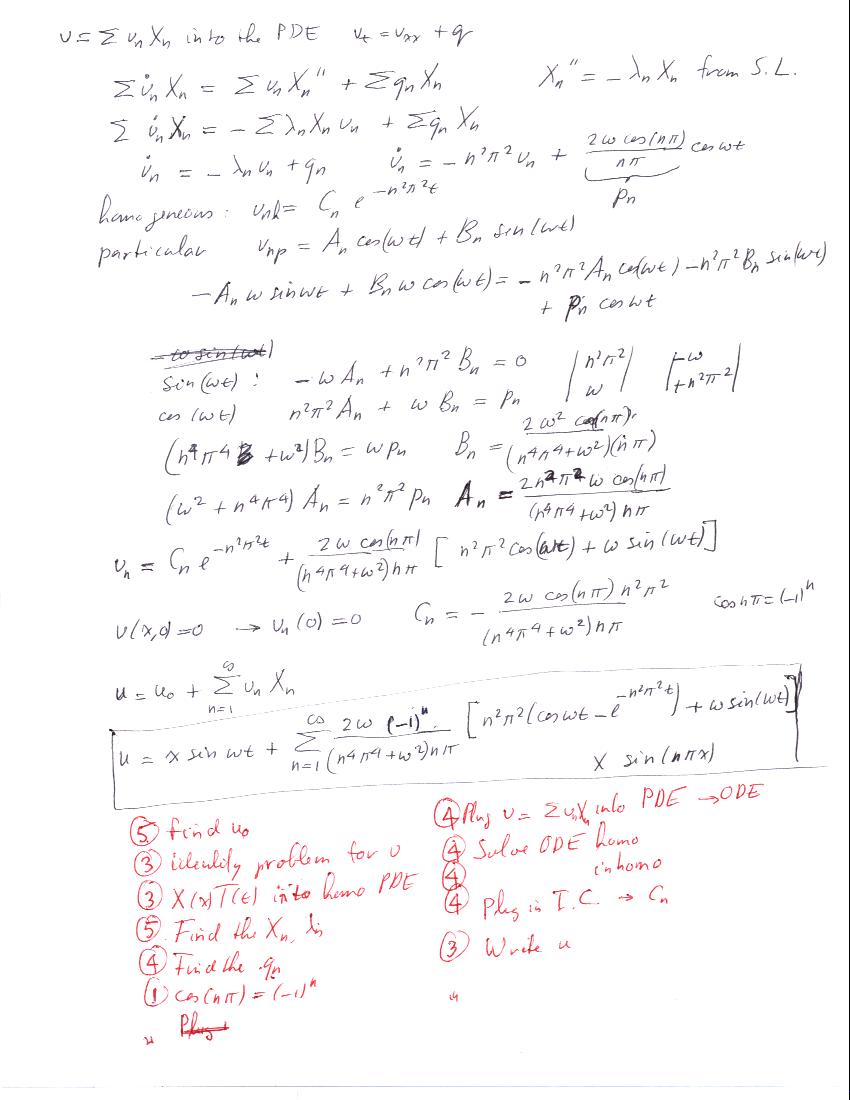 v = Σ vₙ Xₙ into the PDE vₜ = vₓₓ + q
Σ v̇ₙ Xₙ = Σ vₙ Xₙ'' + Σ qₙ Xₙ Xₙ'' = − λₙ Xₙ from S.L.
Σ v̇ₙ Xₙ = − Σ λₙ Xₙ vₙ + Σ qₙ Xₙ
v̇ₙ = − λₙ vₙ + qₙ v̇ₙ = − n²π² vₙ + 2ω cos(nπ)/nπ cos ωt
pₙ
homogeneous: vₙₕ = Cₙ e^{−n²π²t}
particular vₙₚ = Aₙ cos(ωt) + Bₙ sin(ωt)
− Aₙ ω sin ωt + Bₙ ω cos(ωt) = − n²π² Aₙ cos(ωt) − n²π² Bₙ sin(ωt)
+ pₙ cos ωt
−ω sin(ωt)
sin(ωt): − ω Aₙ + n²π² Bₙ = 0 | n²π² | | −ω |
cos(ωt) n²π² Aₙ + ω Bₙ = pₙ | ω | | +n²π² |
(n⁴π⁴ + ω²) Bₙ = ω pₙ Bₙ = 2ω² cos(nπ)/(n⁴π⁴+ω²)(nπ)
(ω² + n⁴π⁴) Aₙ = n²π² pₙ Aₙ = 2n²π² ω cos(nπ)/(n⁴π⁴+ω²) nπ
vₙ = Cₙ e^{−n²π²t} + 2ω cos(nπ)/(n⁴π⁴+ω²) nπ [ n²π² cos(ωt) + ω sin(ωt) ]
v(x,0) = 0 → vₙ(0) = 0 Cₙ = − 2ω cos(nπ) n²π²/(n⁴π⁴+ω²) nπ cos nπ = (−1)ⁿ
u = u₀ + Σ_{n=1}^{∞} vₙ Xₙ
u = x sin ωt + Σ_{n=1}^{∞} 2ω (−1)ⁿ/(n⁴π⁴+ω²) nπ [ n²π² (cos ωt − e^{−n²π²t}) + ω sin(ωt) ]
× sin(nπx)
⑤ find u₀
③ identify problem for v
③ X(x)T(t) into homo PDE
⑤ Find the Xₙ, λₙ
④ Find the qₙ
① cos(nπ) = (−1)ⁿ
Plug
④ Plug v = Σ vₙXₙ into PDE → ODE
④ Solve ODE homo
④ inhomo
④ Plug in I.C. → Cₙ
③ Write u